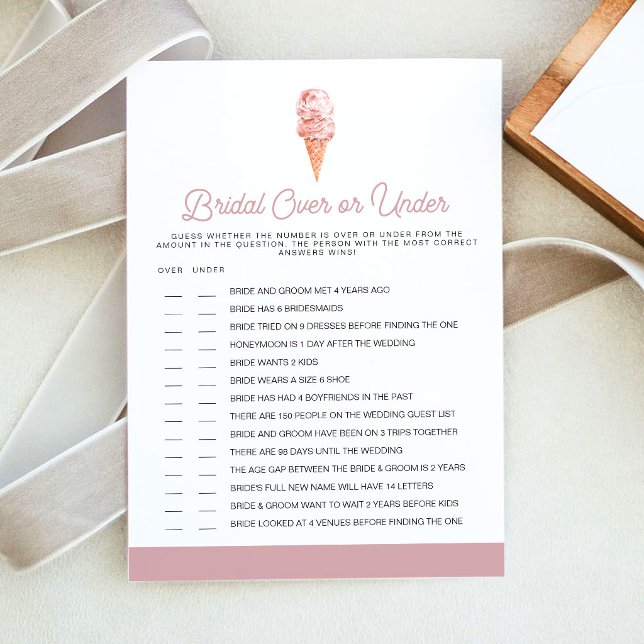 Bridal Over or Under
GUESS WHETHER THE NUMBER IS OVER OR UNDER FROM THE
AMOUNT IN THE QUESTION, THE PERSON WITH THE MOST CORRECT
ANSWERS WINS!
OVER UNDER
__ __ BRIDE AND GROOM MET 4 YEARS AGO
__ __ BRIDE HAS 6 BRIDESMAIDS
__ __ BRIDE TRIED ON 9 DRESSES BEFORE FINDING THE ONE
__ __ HONEYMOON IS 1 DAY AFTER THE WEDDING
__ __ BRIDE WANTS 2 KIDS
__ __ BRIDE WEARS A SIZE 6 SHOE
__ __ BRIDE HAS HAD 4 BOYFRIENDS IN THE PAST
__ __ THERE ARE 150 PEOPLE ON THE WEDDING GUEST LIST
__ __ BRIDE AND GROOM HAVE BEEN ON 3 TRIPS TOGETHER
__ __ THERE ARE 98 DAYS UNTIL THE WEDDING
__ __ THE AGE GAP BETWEEN THE BRIDE & GROOM IS 2 YEARS
__ __ BRIDE'S FULL NEW NAME WILL HAVE 14 LETTERS
__ __ BRIDE & GROOM WANT TO WAIT 2 YEARS BEFORE KIDS
__ __ BRIDE LOOKED AT 4 VENUES BEFORE FINDING THE ONE